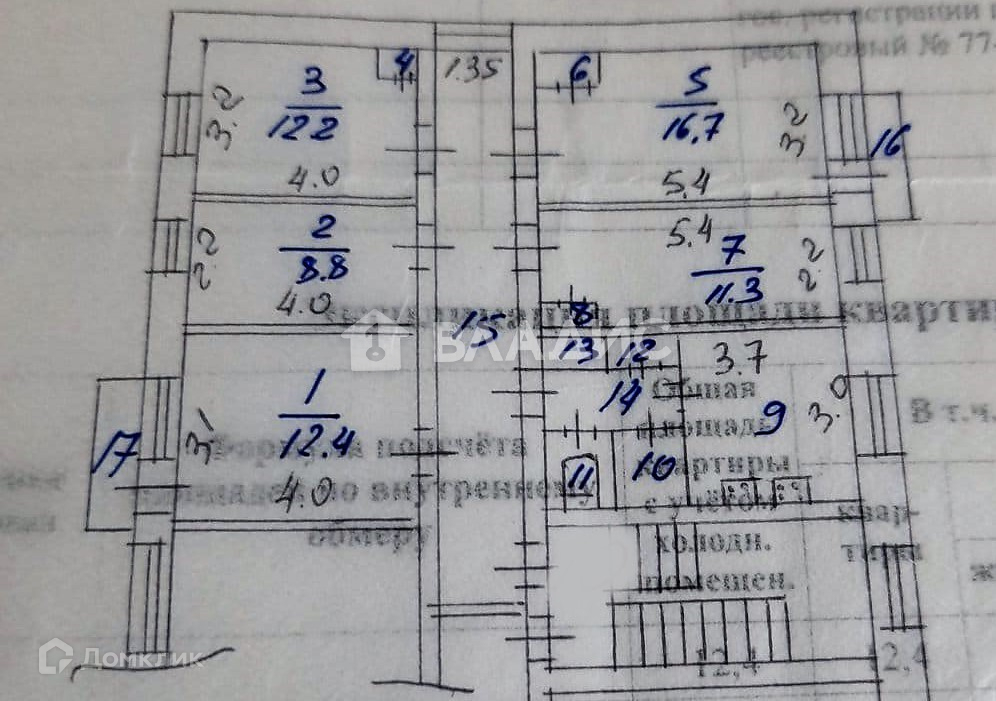 гос. регистрации
реестровый № 77
3
12.2
4
1.35
6
5
16,7
16
3.2
3.2
4.0
5.4
2
8.8
5.4
7
11.3
2.2
2.2
4.0
8
15
площади кварти
ВЛАДИС
13
12
3.7
1
12.4
14
9
3.0
Общая
площадь
В т.ч.
17
3.1
подсчёта
11
10
квартиры
4.0
по внутреннему
с учётом
обмеру
холодн.
помещен.
квар-
тиры
12,4
12,4
Домклик